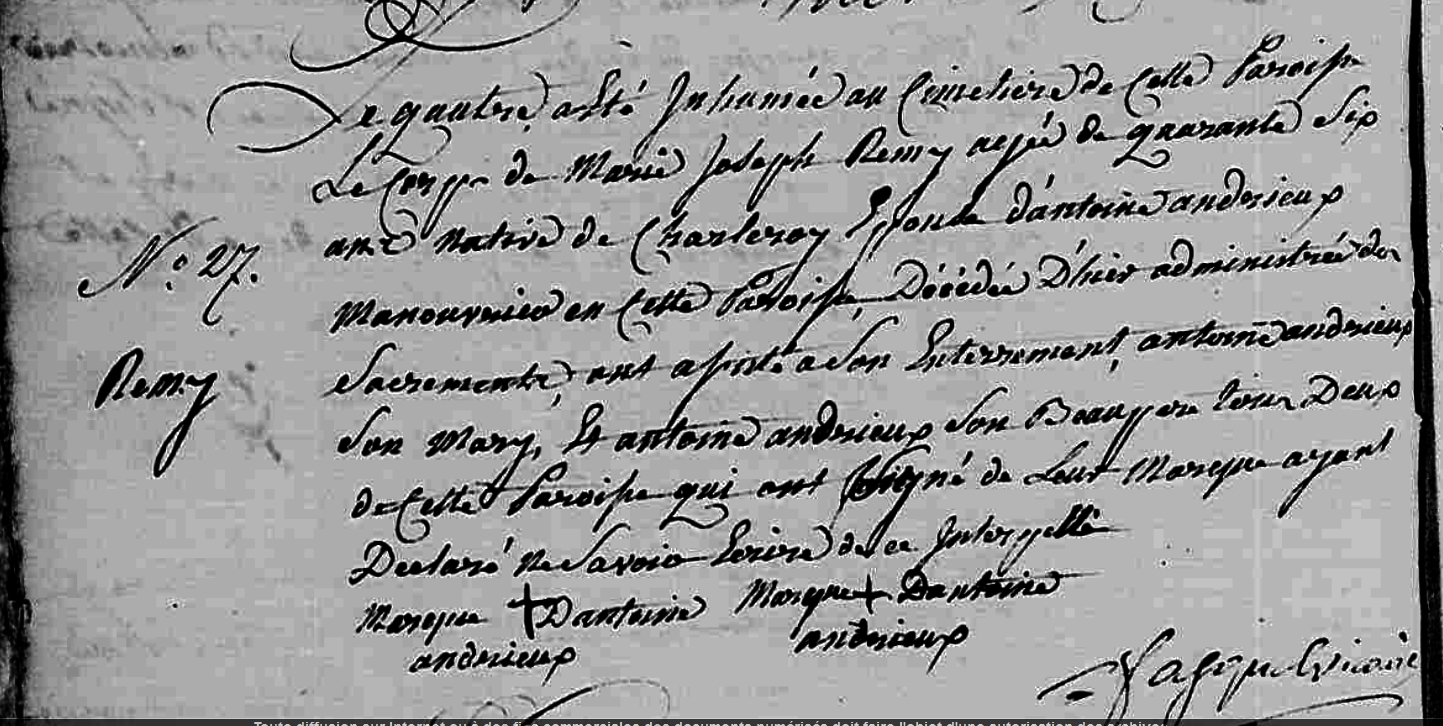 Le quatre, a été Inhumée au Cimetiere de Cette Paroisse
Le Corps de Marie Joseph Remy agée de quarante Six
ans native de Charleroy Epouse d'antoine andrieux
N.o 27.
Manouvrier en Cette Paroisse, Décédée D'hier administrée des
Remy
Sacrements, ont assisté a Son Enterrement, antoine andrieux
Son Mary, Et antoine andrieux Son Beaupere tous Deux
de Cette Paroisse qui ont signé de Leur Marque ayant
Declaré Ne Savoir Ecrire de ce Interpellé
Marque + Dantoine Marque + Dantoine
andrieux andrieux
Toute diffusion sur Internet ou à des fins commerciales des documents numérisés doit faire l'objet d'une autorisation des archives